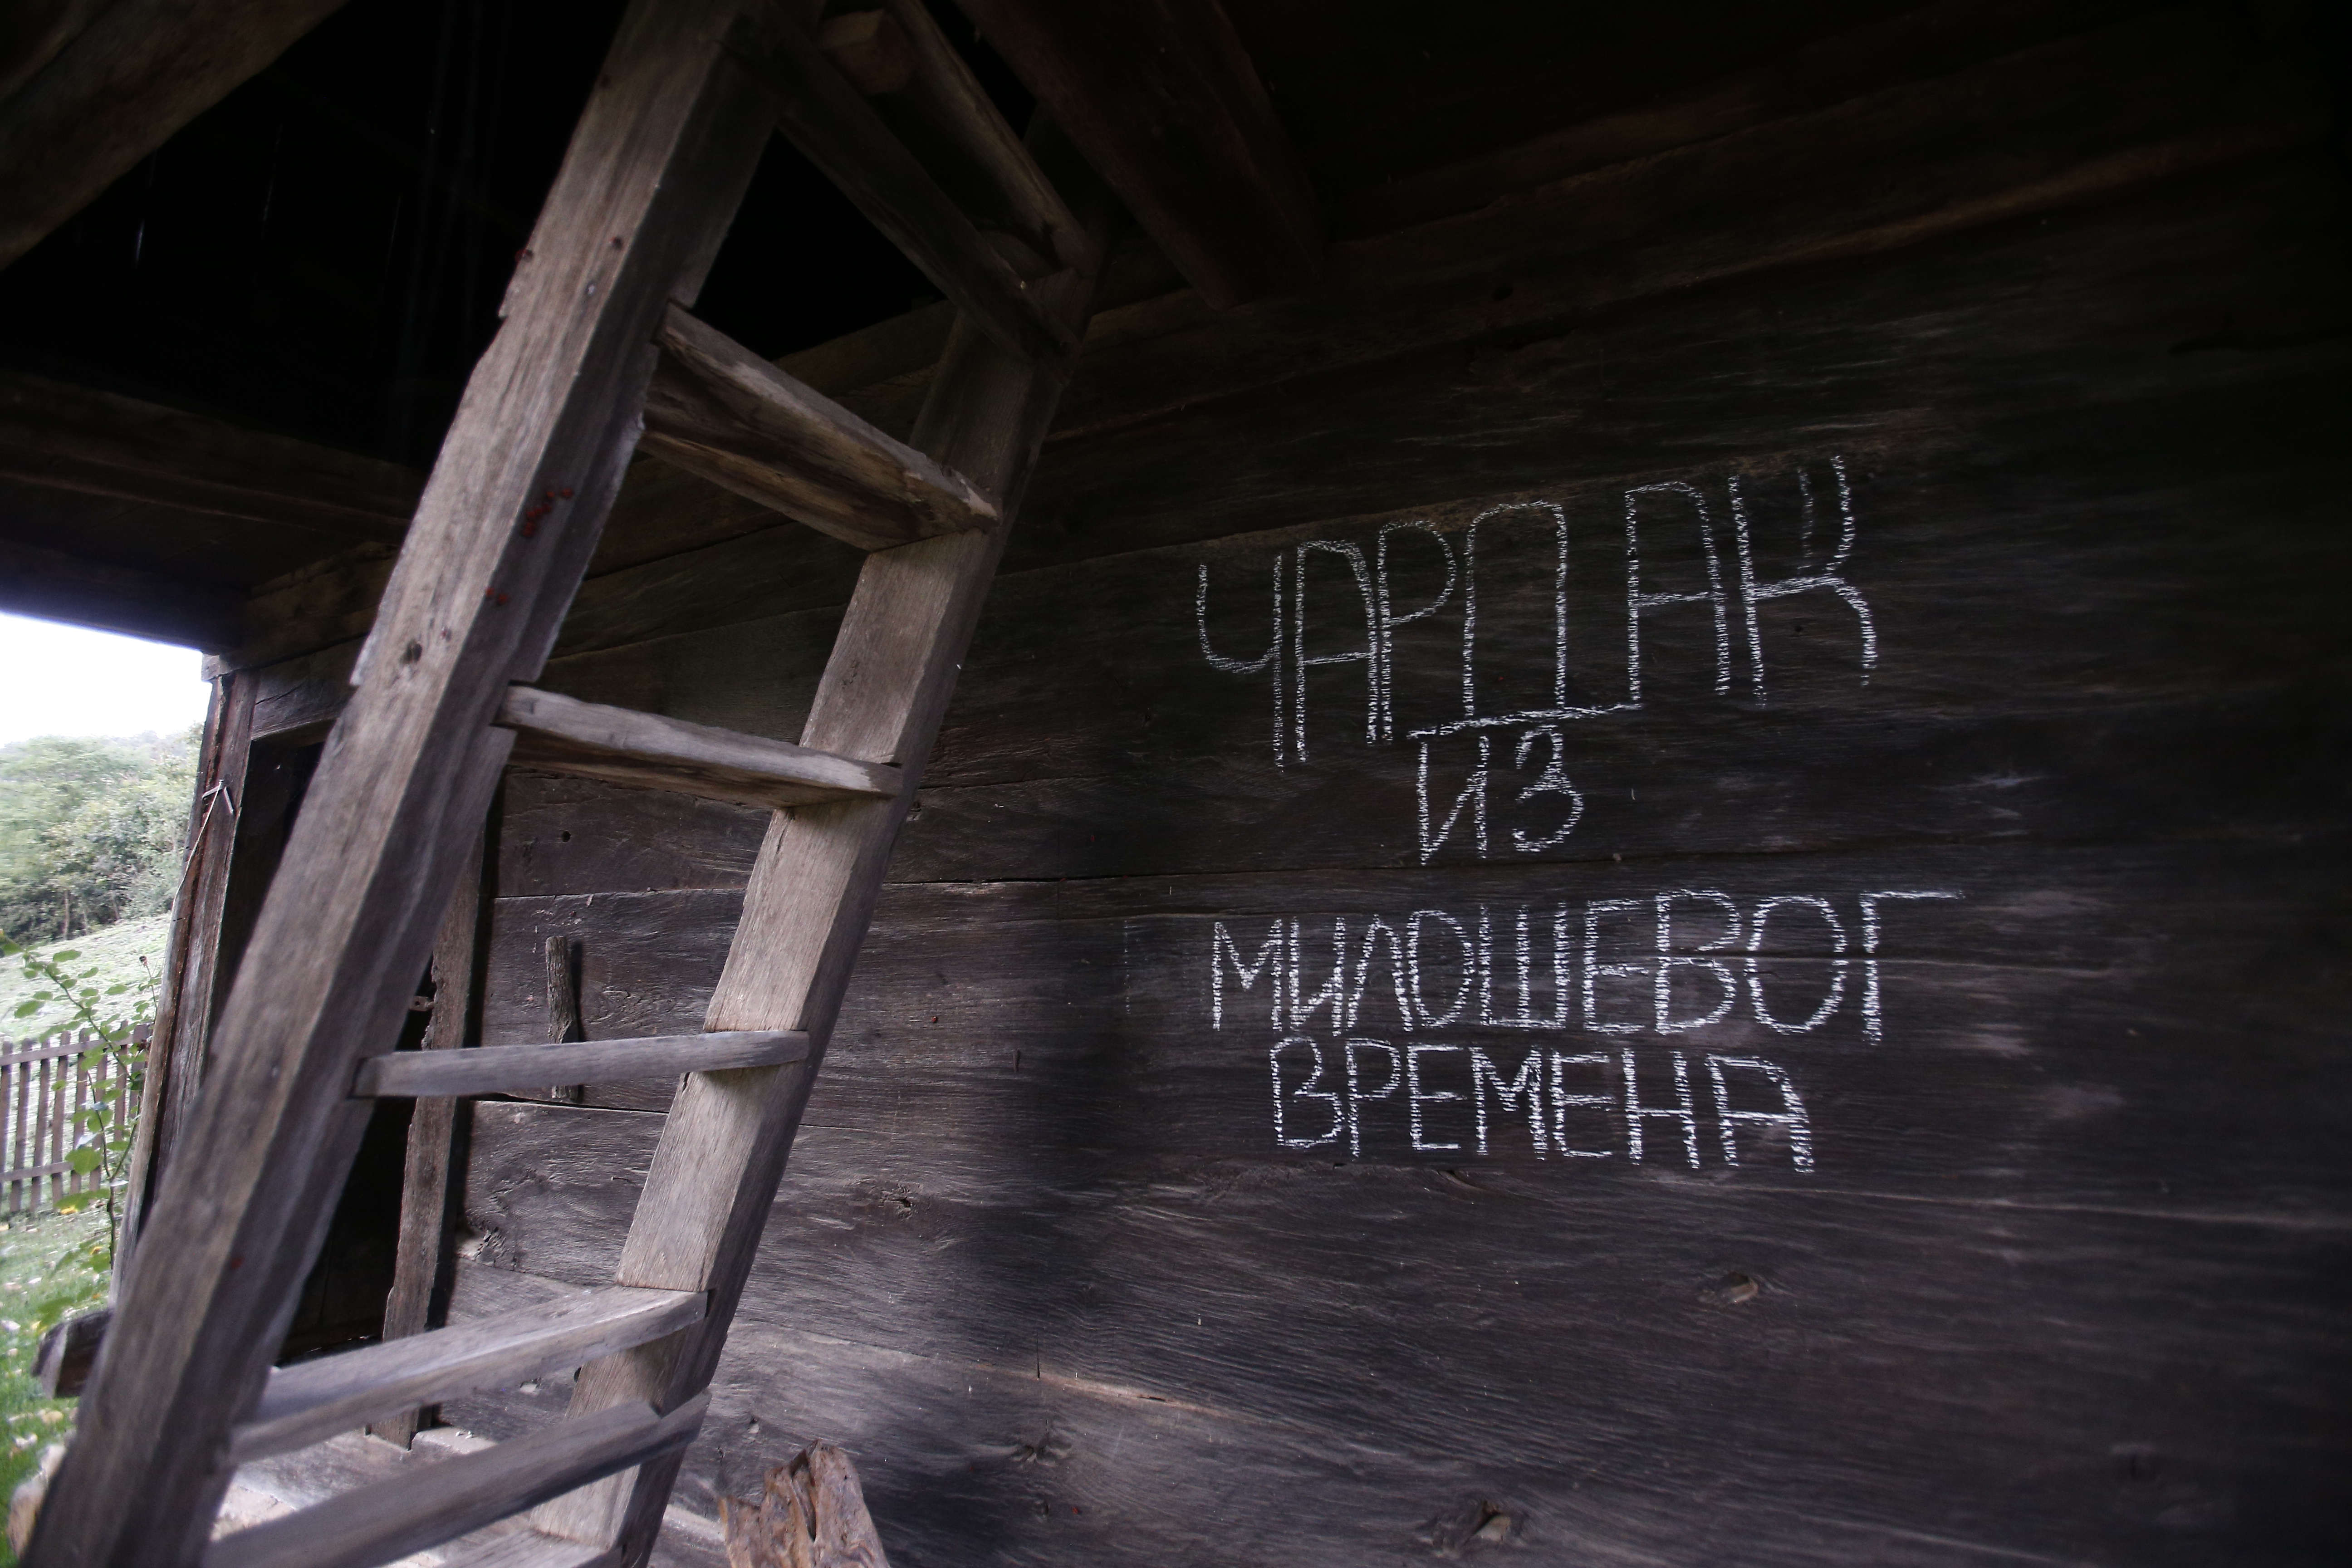 ЧАРДАК
ИЗ
МИЛОШЕВОГ
ВРЕМЕНА